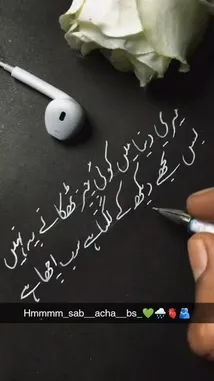 میری دنیا میں کوئی چیز ٹھکانے پہ نہیں
بس تجھے دیکھ کے لگتا ہے سب اچھا ہے
Hmmmm_sab__acha__bs_💚🌧️🫀🫂